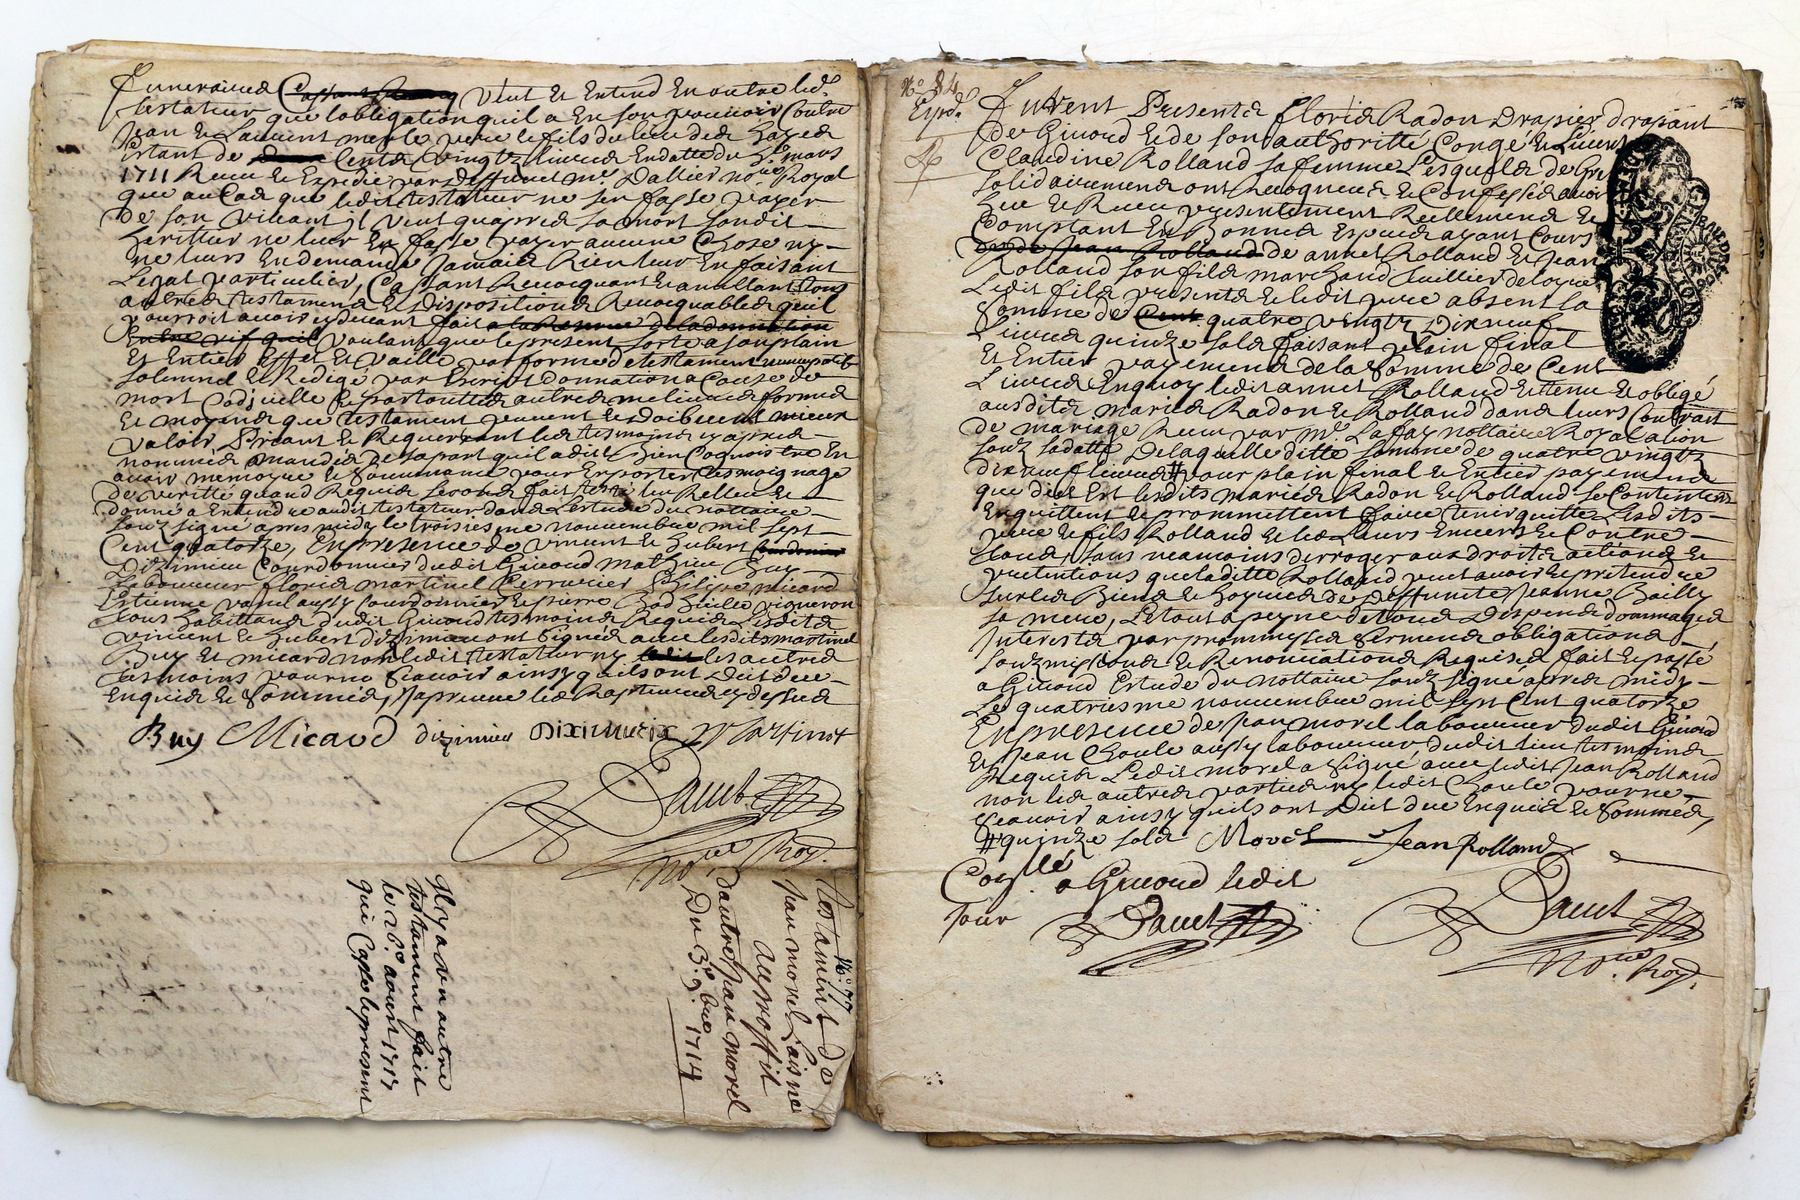 funeraires veut et Entend En outre led.
testateur que lobligation quil a En son pouvoir Contre
Jean et Laurent merle pere et fils du lieu des hayes
Estant de Cents vingtz Livres En datte du mars
1711 Receu et Expedié par deffunct me Dallier nore Royal
que au Cas que ledit testateur ne sen fasse payer
de son vivant il veut quapres sa mort sondit
heritier ne leur En fasse payer aucune Chose ny
ne leurs En demande Jamais Rien leur En faisant
Legat particulier, Cassant Revocquant et anullant tous
autres testaments et dispositions Revocquables quil
pourroit avoir cy devant fait a la Reserve de la donnation
Entre vif quil voulant que le present sorte a son plain
Et Entier Effet et vaille par forme de testament nuncupatif
solemnel et Redigé par Escript donnation a Cause de
mort Codicille et par toutes autres meilleures formes
et moyens que testament peuvent et doibvent mieux
valoir Priant et Requerant les tesmoins cy apres
nommés mandés de sa part quil a dit bien Cognoistre En
avoir memoyre et Souvenance pour En porter tesmoignage
de veritté quand Requis seronts fait leu Relleu et
donné a Entendre audit testateur dans Lestude du nottaire
souz signé apres midy le troisiesme novembre mil sept
Cent quatorze, En presence de vincent et hubert
Dizimieu Courdonnier dudit Givord mathieu Buy
Laboureur floris martinel Cerrurier Philippe micard
Estienne aussy Courdonnier et pierre vigneron
tous habittans dudit Givord tesmoins Requis Lesdits
vincent et hubert dizimieu ont Signés avec lesdits martinel
Buy et micard non ledit testateur ny les autres
tesmoins pour ne scavoir ainsy quils ont dit de ce
Enquis et Sommés, Japreuve les Raptures cy dessus
Buy Micaud dizimieu DIXIMIEUX Martinot
Dauct
nore Roy.
No. 77
Testament de
Jean morel Laisné
au proffit
dautre Jean morel
Du 3e. 9bre 1714
Il y a un autre
testament fait
le 26e aoust 1717
qui Casse le present
No. 84
Expd.
Furent Presents floris Radon Drapier drapant
de Givord et de son authoritté Congé et Licence
Claudine Rolland sa femme Lesquels de Gre
solidairement ont Recogneus et Confessés avoir
eu et Receu presentement Reellement et
Comptant En Bonnes Especes ayant Cours
de annet Rolland et Jean
Rolland son fils marchand
Ledit fils present et ledit pere absent la
Somme de quatre vingtz Dixneuf
Livres quinze sols faisant plain final
Et Entier payement de la Somme de Cent
Livres Enquoy ledit annet Rolland Est tenu et obligé
ausdits mariés Radon et Rolland dans leurs Contrait
de mariage Receu par me. Laffay nottaire Royal a Lion
souz sa datte De laquelle ditte somme de quatre vingtz
dix neuf livres # pour plain final et Entier payement
que dict Est lesdits mariés Radon et Rolland se Contentent
En quittent et prommettent faire tenir quittes Lesdits
pere et fils Rolland et les Leurs Envers et Contre
tous, sans neamoins derroger aux droits actions et
prettentions que laditte Rolland peut avoir et prétendre
sur les Biens et hoyries de deffunte Jeanne Bailly
sa mere, Le tout a peyne de tous Despens dommages
Interests par prommesses serments obligations
souzmissions et Renonciations Requises fait et passé
a Givord Estude du nottaire souz signé apres midy
Le quatriesme novembre mil sept Cent quatorze
En presence de Jean morel laboureur dudit Givord
et Jean Choule aussy laboureur dudit lieu tesmoins
Requis Ledit morel a Signé avec ledit Jean Rolland
non les autres parties ny ledit Choule pour ne
scavoir ainsy quils ont Dict de ce Enquis et Sommés,
# quinze sols Morel Jean Rolland
Conllé a Givord ledit
Jour Dauct
Dauct
nore. Roy.